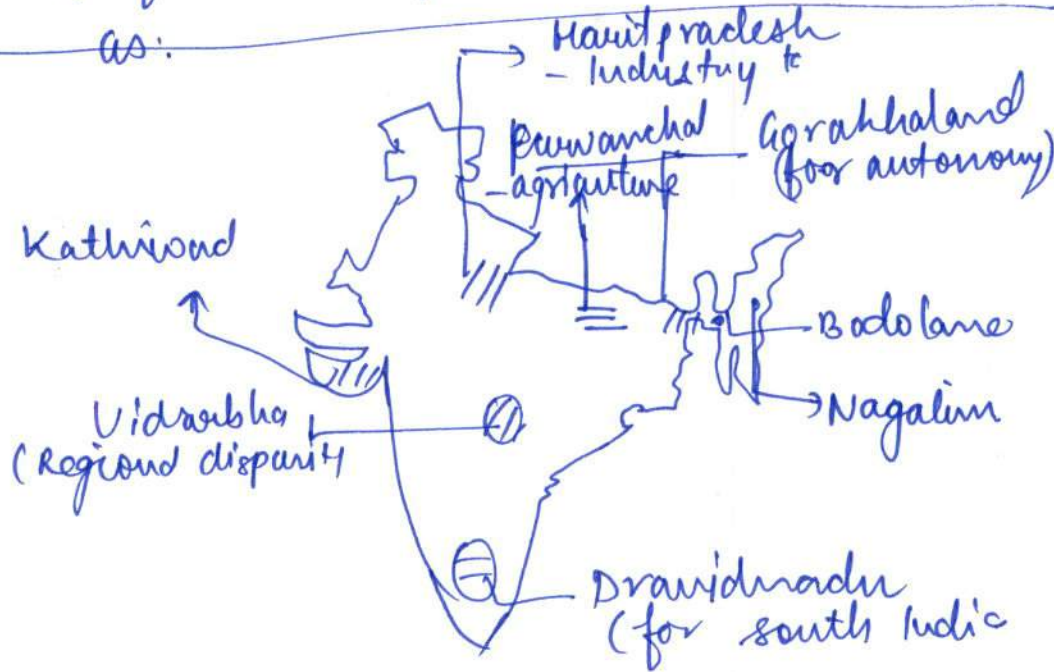 as:
Haritpradesh
- Industry
Purwanchal
- agriculture
Gorakhaland
(for autonomy)
Kathiwad
Bodolane
Nagalim
Vidarbha
(Regional disparity
Dravidnadu
(for south India